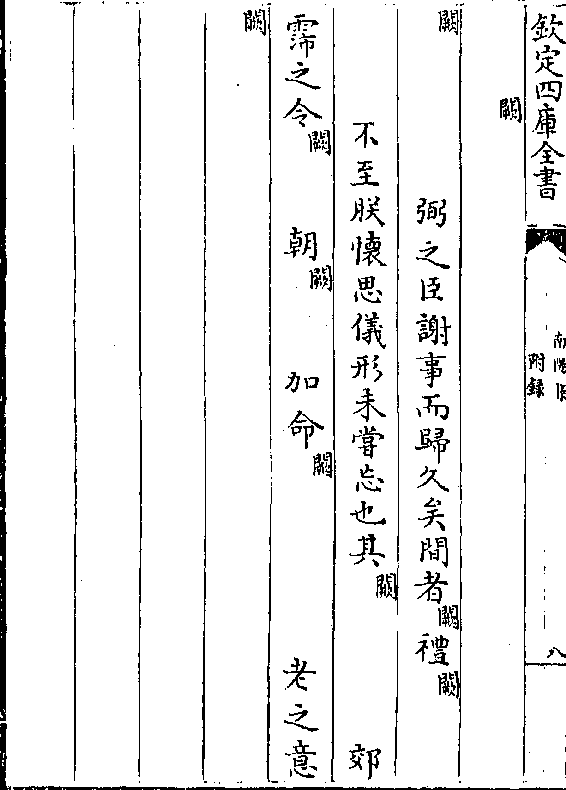 欽定四庫全書
附録
八
闕
闕 弼之臣謝事而歸久矣間者闕禮闕
不至朕懷思儀形未嘗忘也其闕 郊
霈之令闕 朝闕 加命闕 老之意
闕